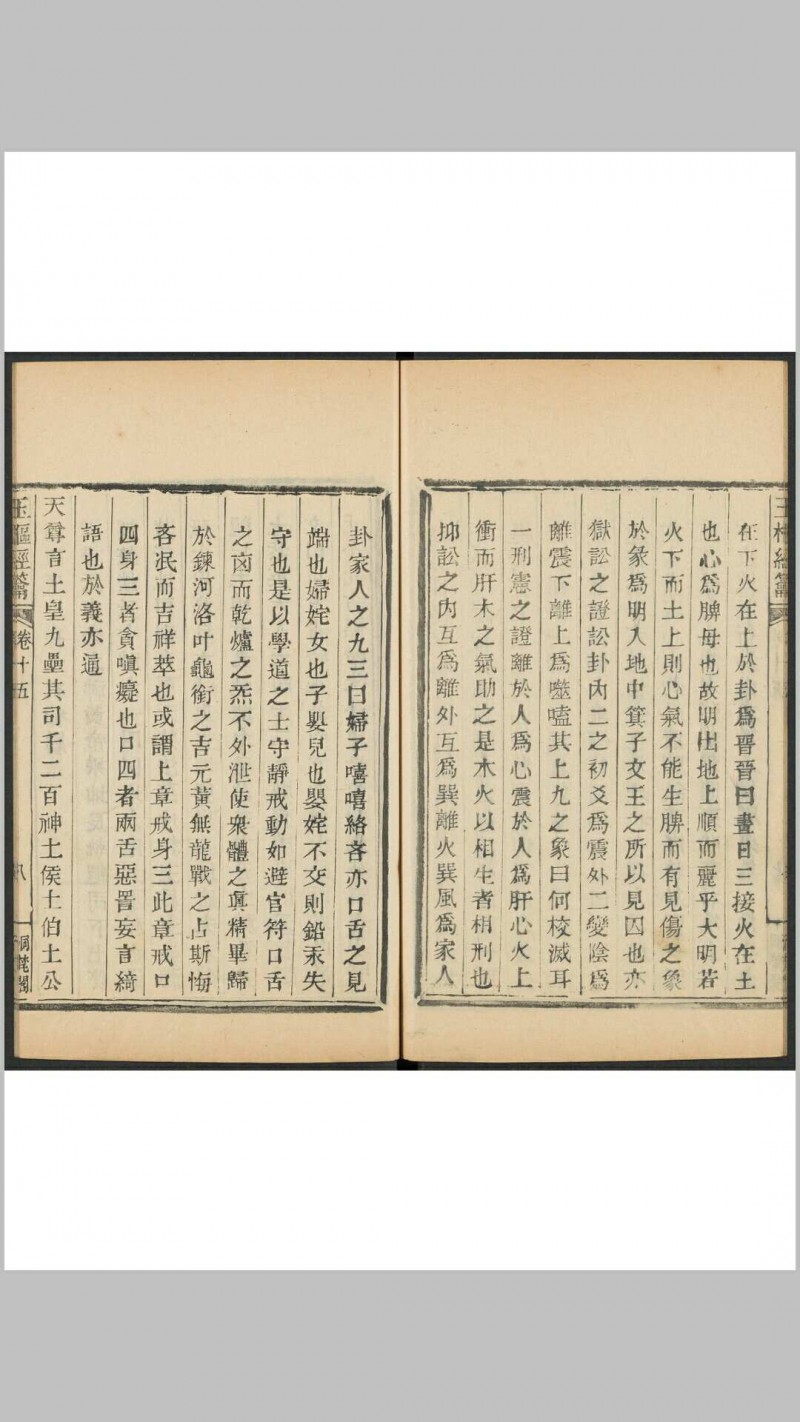 在下火在上於卦爲晋晋曰晝日三接火在土
也心爲脾母也故明出地上順而麗乎大明若
火下而土上則心氣不能生脾而有見傷之象
於象爲明入地中箕子文王之所以見囚也亦
獄訟之證訟卦內二之初爻爲震外二變陰爲
離震下離上爲噬嗑其上九之象曰何校滅耳
一刑憲之證離於人爲心震於人爲肝心火上
衝而肝木之氣助之是木火以相生者相刑也
抑訟之內互爲離外互爲巽離火巽風爲家人
卦家人之九三曰婦子嘻嘻終吝亦口舌之見
端也婦姹女也子嬰兒也嬰姹不交則鉛汞失
守也是以學道之士守靜戒動如避官符口舌
之囪而乾爐之炁不外泄使衆體之真精畢歸
於鍊河洛叶龜銜之吉元黃無龍戰之占斯悔
吝泯而吉祥萃也或謂上章戒身三此章戒口
四身三者貪嗔癡也口四者兩舌惡詈妄言綺
語也於義亦通
天尊言土皇九壘其司千二百神土侯土伯土公
玉樞經籥
卷十五
八